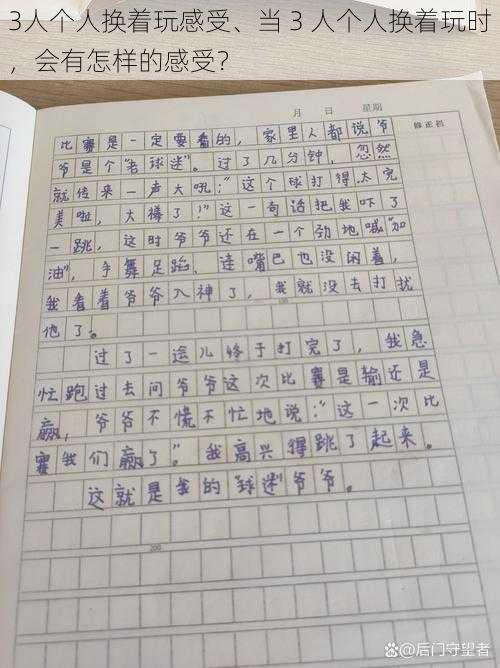 3人个人换着玩感受、当 3 人个人换着玩时
，会有怎样的感受？
月 日 星期
修正栏
比赛是一定要看的，家里人都说爷
爷是个“老球迷”。过了几分钟，忽然
就传来一声大吼：“这个球打得太完
美啦，太棒了！”这一句话把我吓了
一跳，这时爷爷还在一个劲地喊“加
油”，手舞足蹈，连嘴巴也没闲着，
我看着爷爷入神了，我就没去打扰
他了。
过了一会儿终于打完了，我急
忙跑过去问爷爷这次比赛是输还是
赢，爷爷不慌不忙地说：“这一次比
赛我们赢了”。我高兴得跳了起来。
这就是我的“球迷”爷爷。
200
头条 @后门守望者